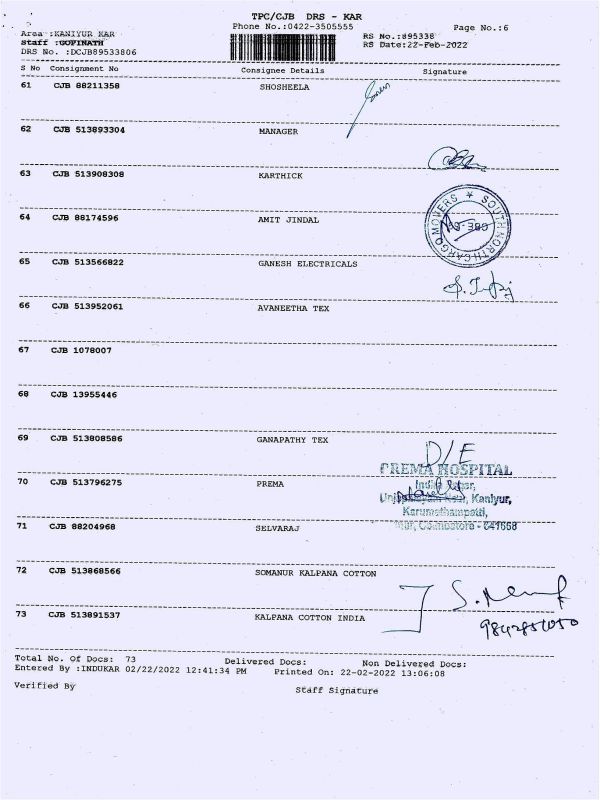 TPC/CJB DRS - KAR
Phone No.:0422-3505555
Page No.:6
Area :KANIYUR KAR
RS No.:895338
Staff :GOPINATH
RS Date:22-Feb-2022
DRS No. :DCJB89533806
S No Consignment No Consignee Details Signature
61 CJB 88211358 SHOSHEELA
62 CJB 513893304 MANAGER
63 CJB 513908308 KARTHICK
64 CJB 88174596 AMIT JINDAL
SOUTH NORTH CARGO MOVERS
65 CJB 513566822 GANESH ELECTRICALS
66 CJB 513952061 AVANEETHA TEX
67 CJB 1078007
68 CJB 13955446
69 CJB 513808586 GANAPATHY TEX
D/E
PREMA HOSPITAL
70 CJB 513796275 PREMA
Kaniyur,
Karumathampatti,
Coimbatore - 641668
71 CJB 88204968 SELVARAJ
72 CJB 513868566 SOMANUR KALPANA COTTON
73 CJB 513891537 KALPANA COTTON INDIA
Total No. Of Docs: 73 Delivered Docs: Non Delivered Docs:
Entered By :INDUKAR 02/22/2022 12:41:34 PM Printed On: 22-02-2022 13:06:08
Verified By Staff Signature